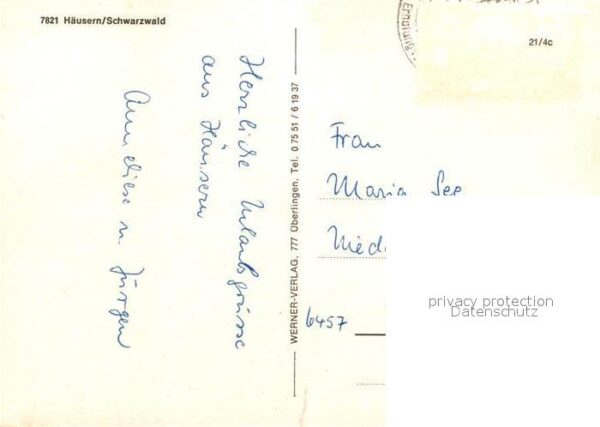 7821 Häusern/Schwarzwald
Herzliche Urlaubsgrüsse
aus Häusern
Anneliese u. Jürgen
WERNER-VERLAG, 777 Überlingen, Tel. 0 75 51 / 6 19 37
21/4c
Frau
Maria See
Nied
6457
privacy protection
Datenschutz